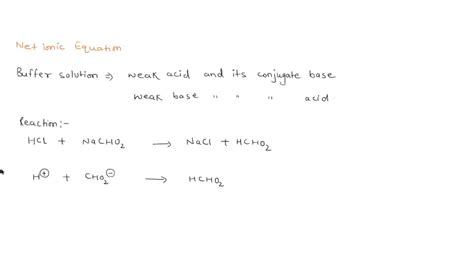 Net Ionic Equation
Buffer solution ⇒ weak acid and its conjugate base
weak base " " " acid
Reaction:-
HCl + NaCHO₂ → NaCl + HCHO₂
H⊕ + CHO₂⊖ → HCHO₂